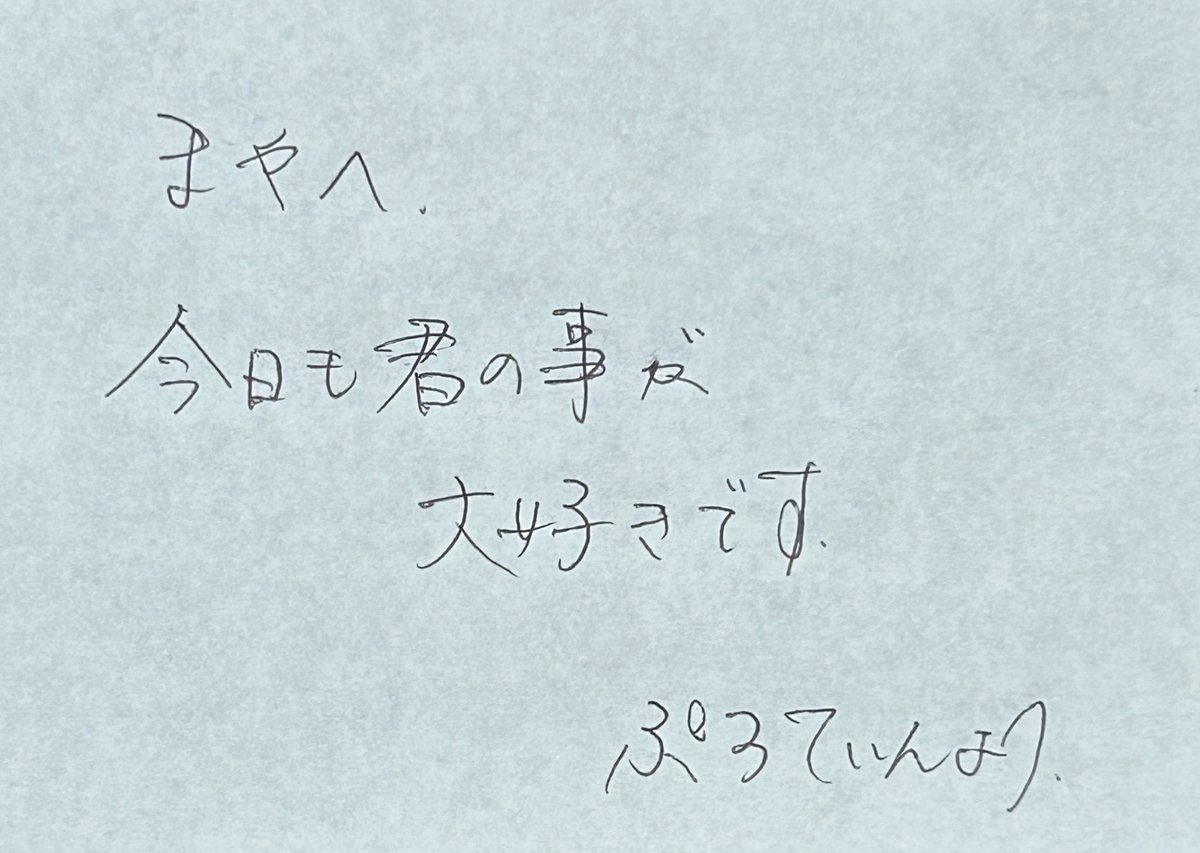 まやへ.
今日も君の事が
大好きです.
ぷろてぃんより.